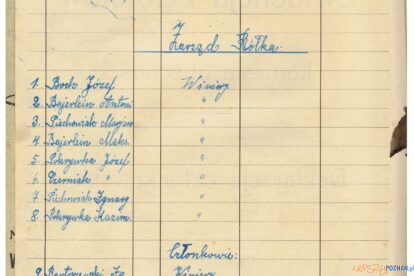 Zarząd Kółka.
1. Bock Józef Winiary
2. Bajerlein Antoni "
3. Piechowiak Marjan "
4. Bajerlein Maks. "
5. Pokrywka Józef "
6. Czerniak " "
7. Piechowiak Ignacy "
8. Pokrywka Kazim. "
Członkowie:
9. Winiary